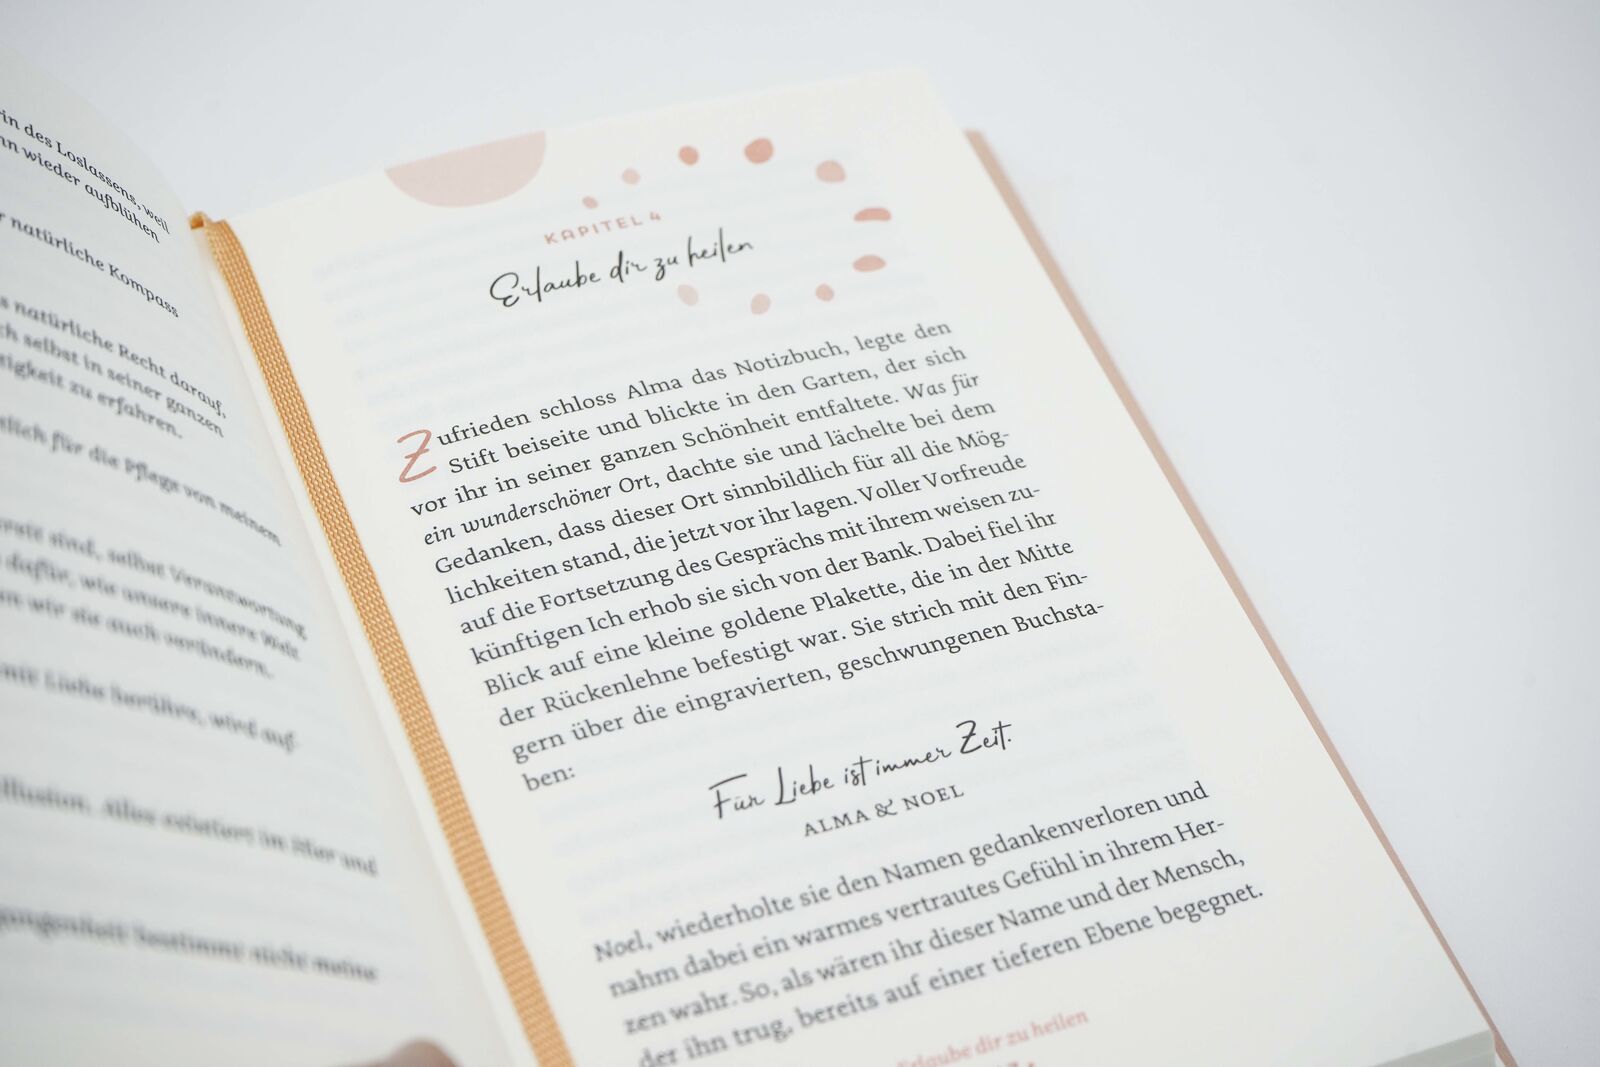 in des Loslassens, weil
nn wieder aufblühen
natürliche Kompass
s natürliche Recht darauf,
ch selbst in seiner ganzen
tigkeit zu erfahren.
tlich für die Pflege von meinem
sind, selbst Verantwortung
dafür, wie unsere innere Welt
wir sie auch verändern.
mit Liebe berühre, wird auf-
Illusion. Alles existiert im Hier und
gangenheit bestimmt nicht meine
KAPITEL 4
Erlaube dir zu heilen
Zufrieden schloss Alma das Notizbuch, legte den
Stift beiseite und blickte in den Garten, der sich
vor ihr in seiner ganzen Schönheit entfaltete. Was für
ein wunderschöner Ort, dachte sie und lächelte bei dem
Gedanken, dass dieser Ort sinnbildlich für all die Mög-
lichkeiten stand, die jetzt vor ihr lagen. Voller Vorfreude
auf die Fortsetzung des Gesprächs mit ihrem weisen zu-
künftigen Ich erhob sie sich von der Bank. Dabei fiel ihr
Blick auf eine kleine goldene Plakette, die in der Mitte
der Rückenlehne befestigt war. Sie strich mit den Fin-
gern über die eingravierten, geschwungenen Buchsta-
ben:
Für Liebe ist immer Zeit.
ALMA & NOEL
Noel, wiederholte sie den Namen gedankenverloren und
nahm dabei ein warmes vertrautes Gefühl in ihrem Her-
zen wahr. So, als wären ihr dieser Name und der Mensch,
der ihn trug, bereits auf einer tieferen Ebene begegnet.
Erlaube dir zu heilen